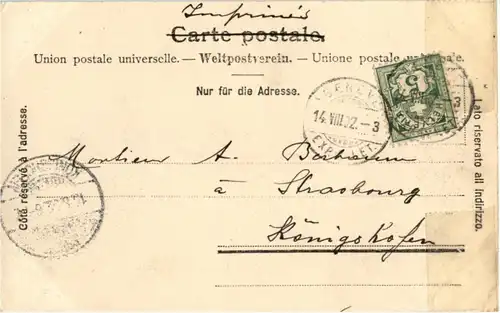 Imprimés
Carte postale.
Union postale universelle. — Weltpostverein. — Unione postale universale.
Nur für die Adresse.
Côté réservé à l'adresse.
Lato riservato all indirizzo.
14.VIII.02.-3
EXP.
5
Monsieur A.
à Strasbourg
Königshofen